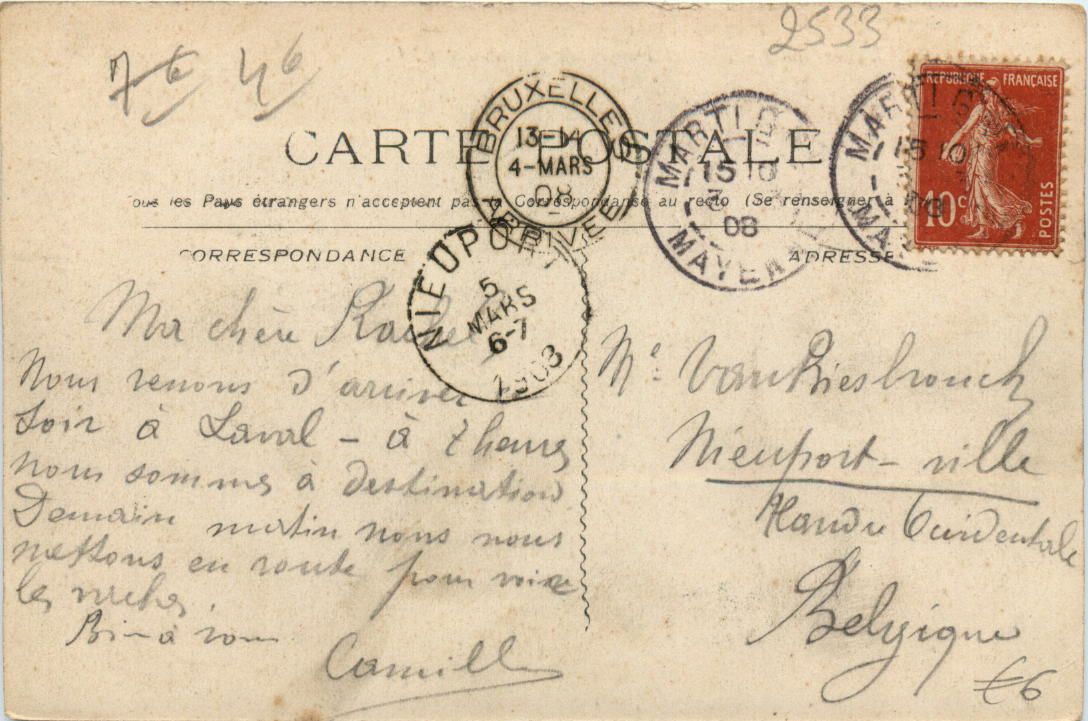 2533
7 6 4 6
CARTE POSTALE
Tous les Pays étrangers n'acceptent pas la Correspondance au recto (Se renseigner à
CORRESPONDANCE
ADRESSE
RÉPUBLIQUE FRANÇAISE
10c
POSTES
BRUXELLES
13-14
4-MARS
08
ARRIVEE
MARTIG
15 10
3
08
MAYEN
MARTIG
15 10
08
MA
NIEUPORT
5
MARS
6-7
1908
Ma chère Rachel
Nous venons d'arriver
soir à Laval - à 7 heures
nous sommes à destination
Demain matin nous nous
mettons en route pour voir
les vaches.
Bien à vous
Camille
Me Van Biesbrouck
Nieuport-ville
Flandre Occidentale
Belgique
€6